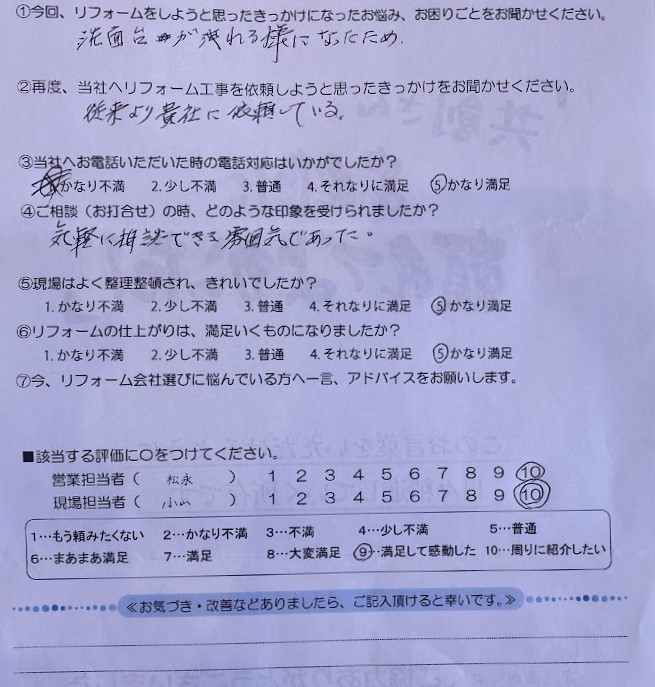 ①今回、リフォームをしようと思ったきっかけになったお悩み、お困りごとをお聞かせください。
洗面台が洩れる様になったため.
②再度、当社へリフォーム工事を依頼しようと思ったきっかけをお聞かせください。
従来より貴社に依頼している。
③当社へお電話いただいた時の電話対応はいかがでしたか?
かなり不満 2.少し不満 3.普通 4.それなりに満足 ⑤かなり満足
④ご相談(お打合せ)の時、どのような印象を受けられましたか?
気軽に相談できる雰囲気であった。
⑤現場はよく整理整頓され、きれいでしたか?
1.かなり不満 2.少し不満 3.普通 4.それなりに満足 ⑤かなり満足
⑥リフォームの仕上がりは、満足いくものになりましたか?
1.かなり不満 2.少し不満 3.普通 4.それなりに満足 ⑤かなり満足
⑦今、リフォーム会社選びに悩んでいる方へ一言、アドバイスをお願いします。
■該当する評価に○をつけてください。
営業担当者( 松永 ) 1 2 3 4 5 6 7 8 9 ⑩
現場担当者( 小山 ) 1 2 3 4 5 6 7 8 9 ⑩
1…もう頼みたくない 2…かなり不満 3…不満 4…少し不満 5…普通
6…まあまあ満足 7…満足 8…大変満足 ⑨…満足して感動した 10…周りに紹介したい
≪お気づき・改善などありましたら、ご記入頂けると幸いです。≫